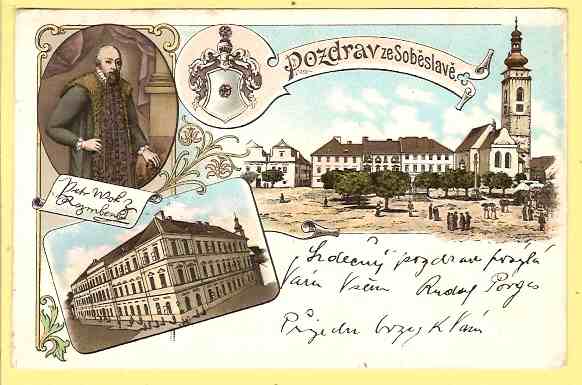 Pozdrav ze Soběslavě.
Petr Wok z
Rozmberků
Srdečný pozdrav posýlá
Vám Všem Rudolf Porges
Přijedu brzy k Vám